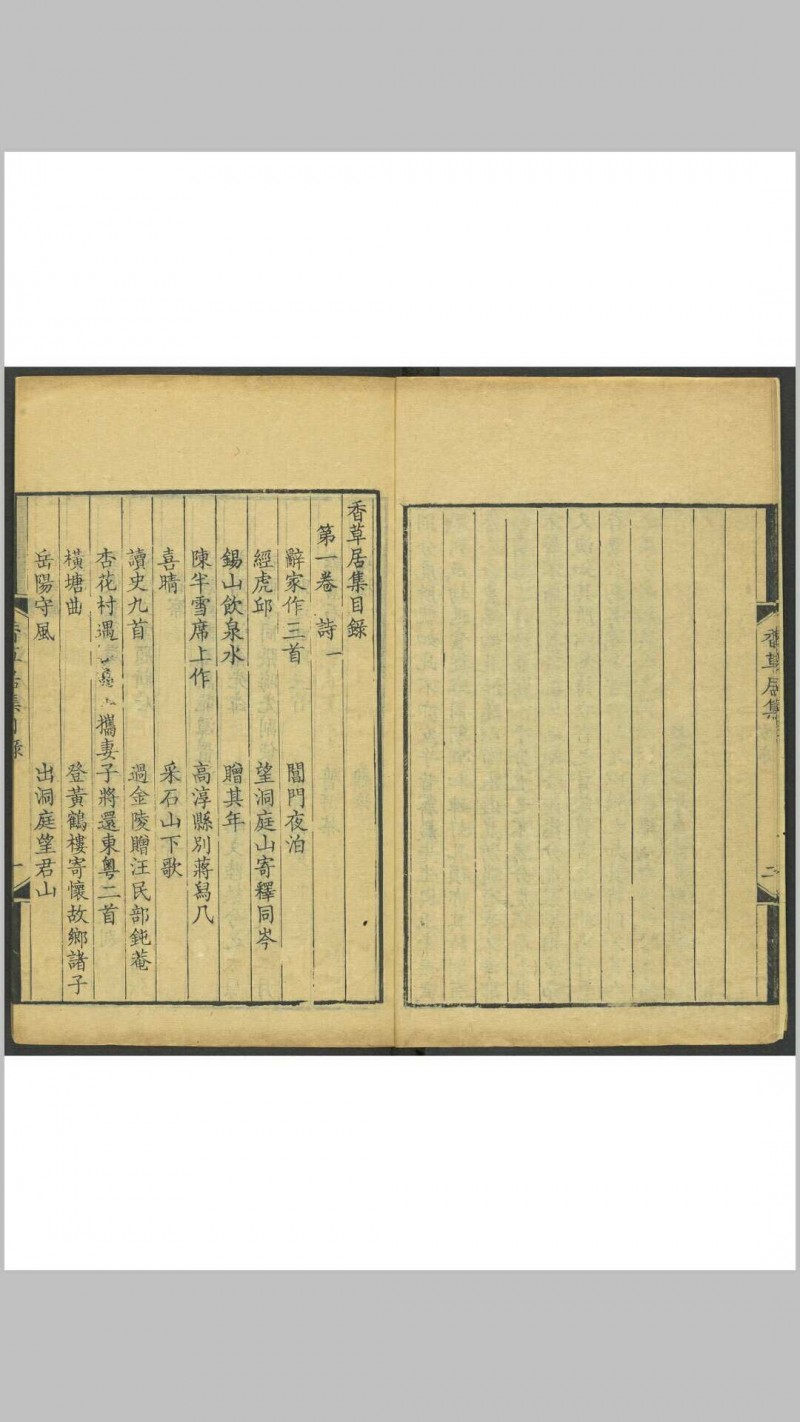 香草居集
二
香草居集目錄
第一卷 詩一
辭家作三首 閶門夜泊
經虎邱 望洞庭山寄釋同岑
錫山飲泉水 贈其年
陳半雪席上作 高淳縣別蔣舄几
喜晴 采石山下歌
讀史九首 過金陵贈汪民部鈍菴
杏花村遇 攜妻子將還東粵二首
橫塘曲 登黃鶴樓寄懷故鄉諸子
岳陽守風 出洞庭望君山
香草居集目錄
一